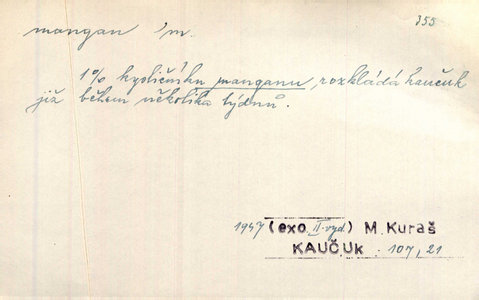 855
mangan 'm.
1% kysličníku manganu, rozkládá kaučuk
již během několika týdnů.
1947 (exc. II. vyd.) M. Kuraš
KAUČUK. 107, 21